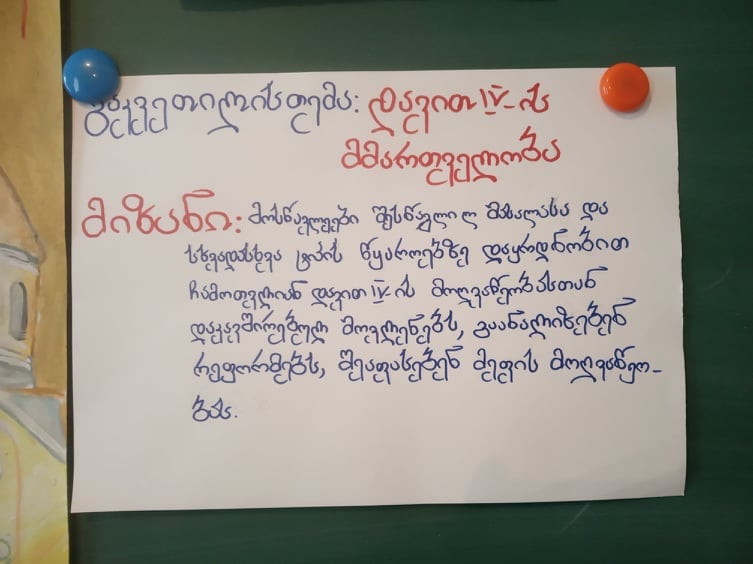 გაკვეთილის თემა: დავით IV-ის
მმართველობა
მიზანი: მოსწავლეები შესწავლილ მასალასა და
სხვადასხვა ტიპის წყაროებზე დაყრდნობით
ჩამოთვლიან დავით IV-ის მოღვაწეობასთან
დაკავშირებულ მოვლენებს, გაანალიზებენ
რეფორმებს, შეაფასებენ მეფის მოღვაწეო-
ბას.